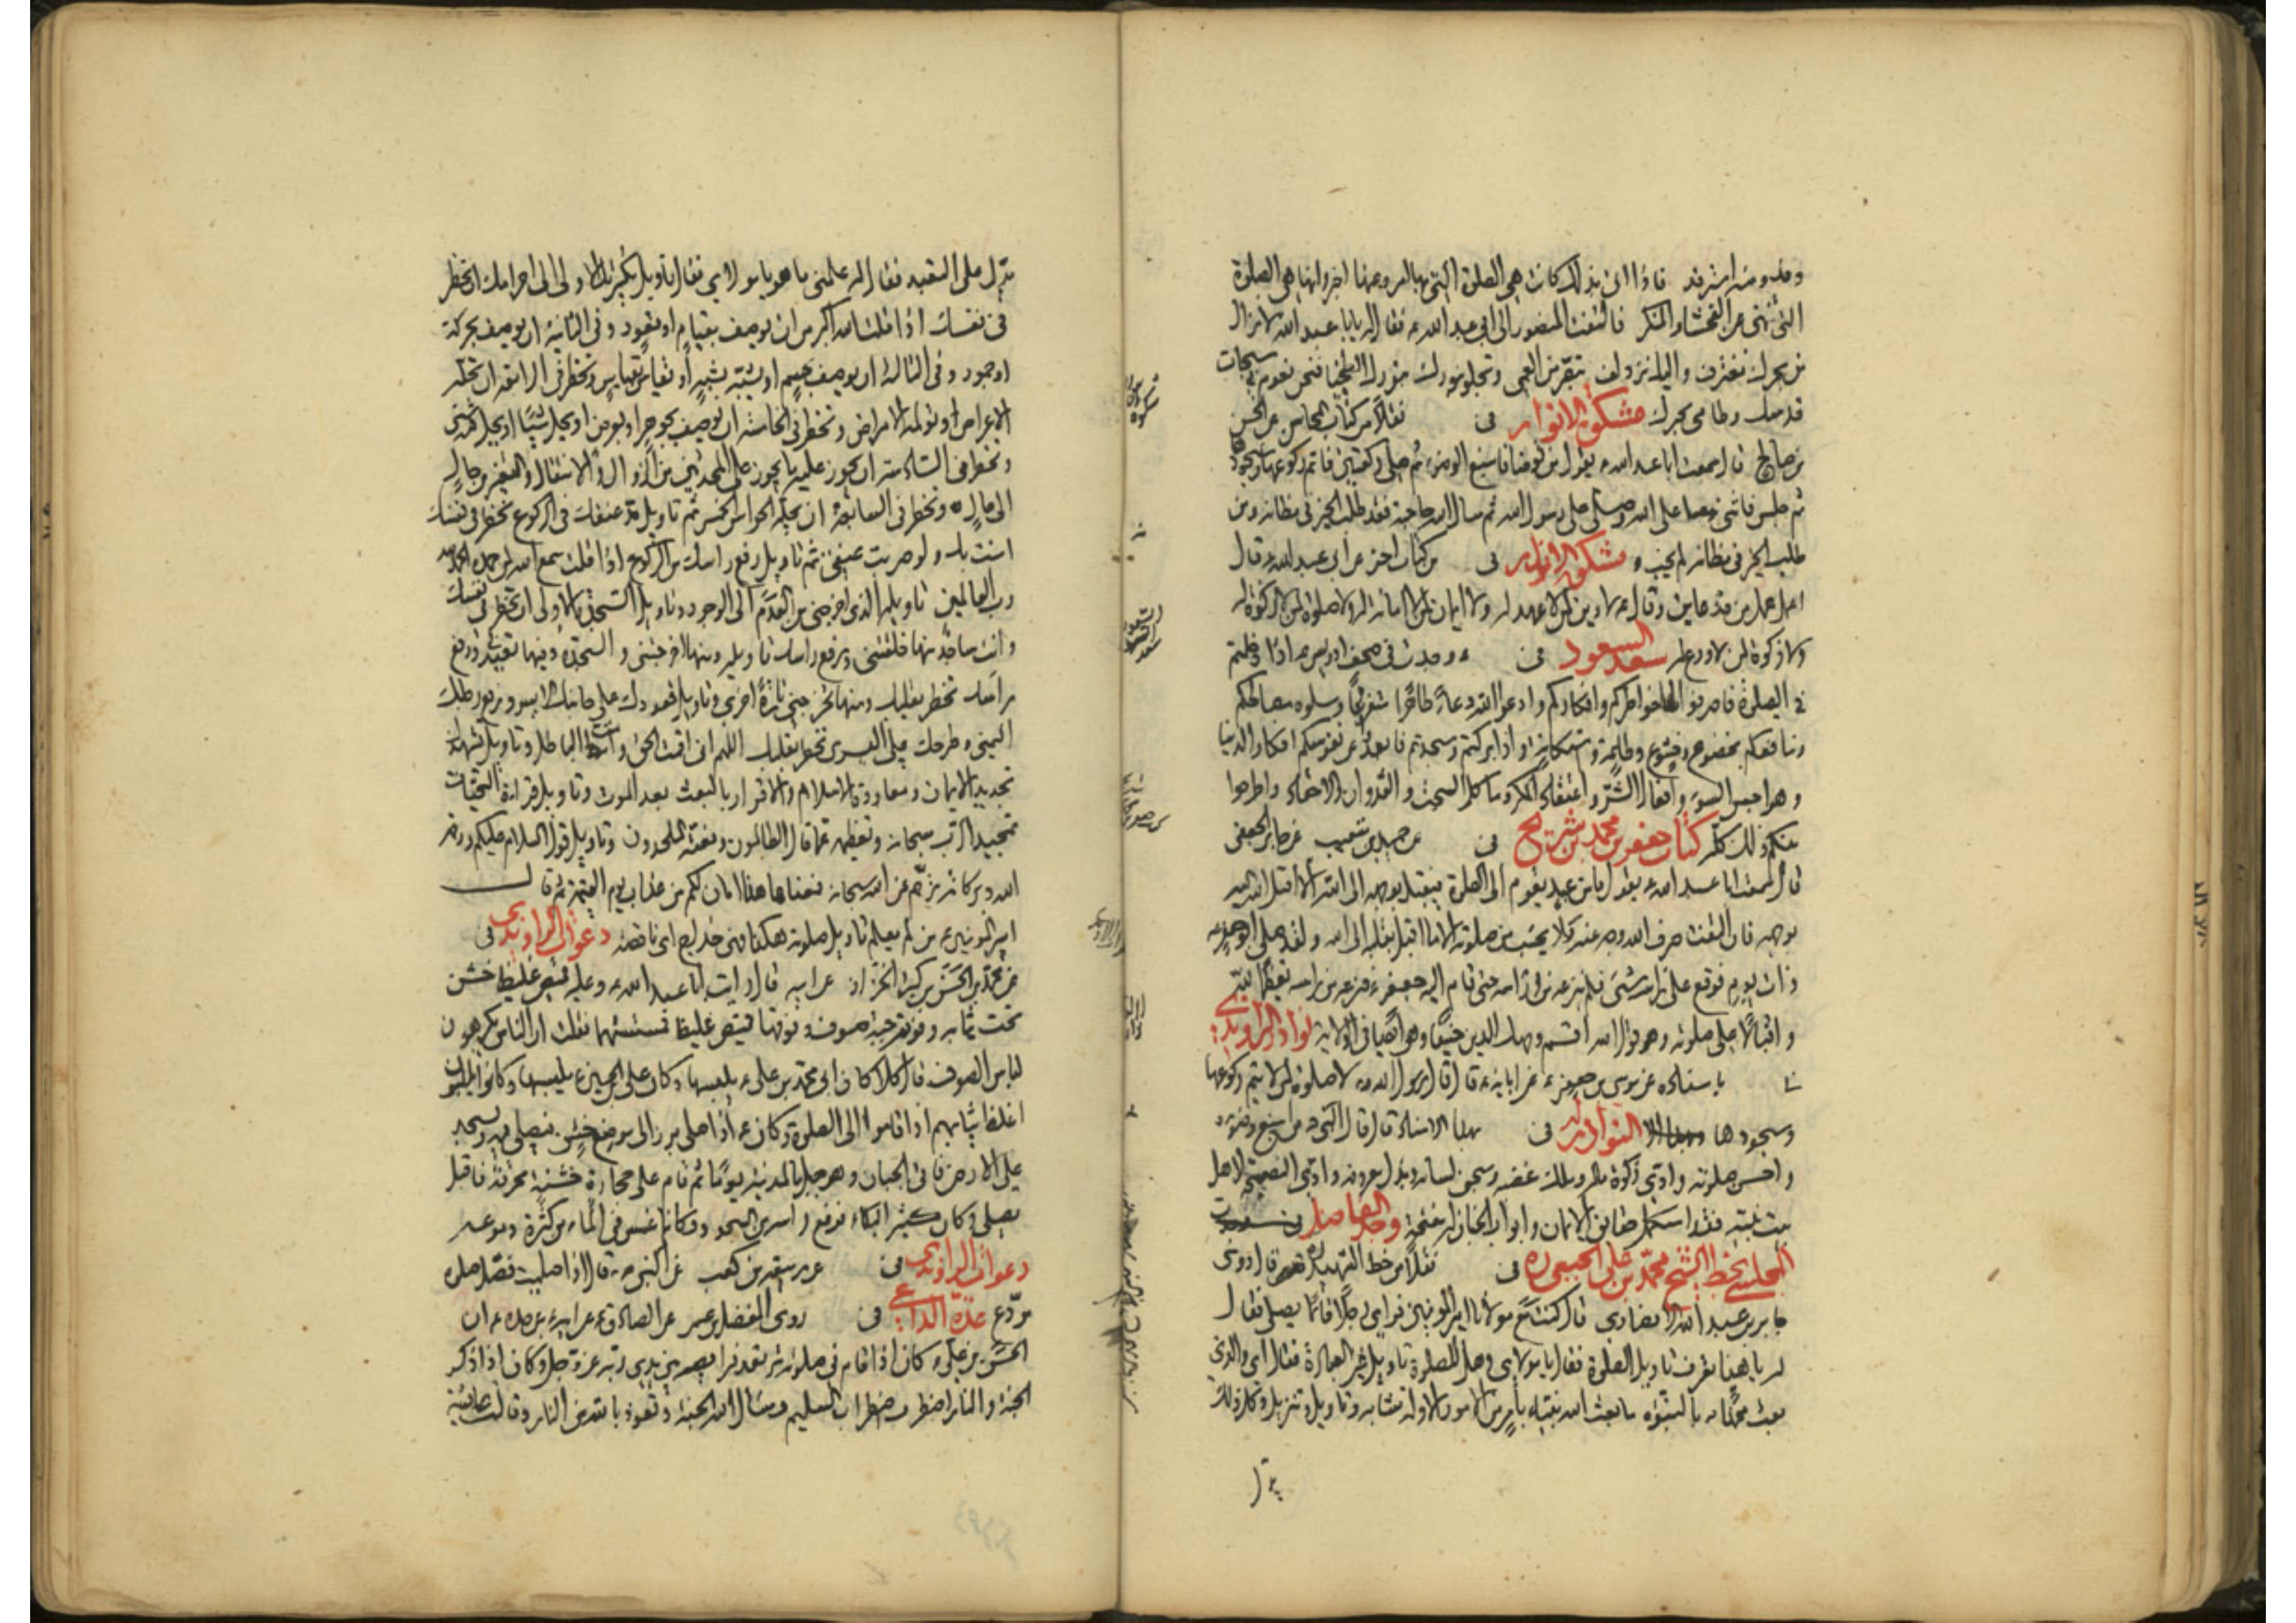 التي تنهى عن الفحشاء والمنكر فالتفت المنصور الى ابي عبد الله ع فقال له يا ابا عبد الله لا نزال
من بحرك نغترف واليك نزدلف تبصر من العمى وتجلو بنورك الطخياء فنحن نعوم في سبحات
قدسك وطامي بحرك مشكوة الانوار في نقلا من كتاب المحاسن عن الحسن
بن صالح قال سمعت ابا عبد الله ع يقول من توضأ فاسبغ الوضوء ثم صلى ركعتين فاتم ركوعها وسجودها
ثم جلس فاثنى على الله وصلى على رسول الله ثم سال الله حاجته فقد طلب الخير في مظانه ومن
طلب الخير في مظانه لم يخب مشكوة الانوار في من كتاب اخر عن ابي عبد الله ع قال
اعمل عمل من قد عاين وقال ع لا دين لمن لا عهد له ولا ايمان لمن لا امانة له ولا صلوة لمن لا زكوة له
ولا زكوة لمن لا ورع له سعد السعود في وجدت في صحف ادريس ع اذا دخلتم
في الصلوة فاصرفوا لها خواطركم وافكاركم وادعوا الله دعاء طاهرا متفرغا وسلوه مصالحكم
ومنافعكم بخضوع وخشوع وطاعة واستكانة واذا ركعتم وسجدتم فابعدوا عن نفوسكم افكار الدنيا
وهواجس السوء وافعال الشر واعتقاد المكر وماكل السحت والعدوان والاحقاد واطرحوا
بينكم ذلك كله كتاب جعفر بن محمد بن شريح في عن حميد بن شعيب عن جابر الجعفي
قال سمعت ابا عبد الله ع يقول ما من عبد يقوم الى الصلوة فيقبل بوجهه الى الله الا اقبل الله اليه
بوجهه فان التفت صرف الله وجهه عنه ولا يحسب من صلوته الا ما اقبل بقلبه الى الله ولقد صلى ابو جعفر ع
ذات يوم فوقع على راسه شيء فلم ينزعه من راسه حتى قام اليه جعفر ع فنزعه من راسه تعظيما لله
واقبالا على صلوته وهو قول الله اقم وجهك للدين حنيفا وهو ايضا في الولاية نوادر الراوندي
باسناده عن موسى بن جعفر ع عن ابائه ع قال قال رسول الله ص لا صلوة لمن لا يتم ركوعها
وسجودها النوادر له في بهذا الاسناد قال قال النبي ص من اسبغ وضوءه
واحسن صلوته وادى زكوة ماله وملك غضبه وسجن لسانه وبذل معروفه وادى النصيحة لاهل
بيت نبيه فقد استكمل حقايق الايمان وابواب الجنان له مفتحة وجد الفاضل
المجلسي بخط الشيخ محمد بن علي الجبعي ره في نقلا من خط الشهيد ره قال روى
جابر بن عبد الله الانصاري قال كنت مع مولانا امير المؤمنين فراى رجلا قائما يصلي فقال
له يا هذا تعرف تاويل الصلوة فقال يا مولاي وهل للصلوة تاويل غير العبادة فقال اي والذي
بعث محمدا ص بالنبوة ما بعث الله نبيه بامر من الامور الا وله متشابه وتاويل وتنزيل وكل ذلك
يدل
يدل على التعبد فقال له علمني ما هو يا مولاي فقال تاويل تكبيرتك الاولى الى احرامك ان تخطر
في نفسك اذا قلت الله اكبر من ان يوصف بقيام او قعود وفي الثانية ان يوصف بحركة
او جمود وفي الثالثة ان يوصف بجسم او يشبه بشبه او يقاس بقياس وتخطر في الرابعة ان تحله
الاعراض او تؤلمه الامراض وتخطر في الخامسة ان يوصف بجوهر او بعرض او يحل شيئا او يحل فيه شيء
وتخطر في السادسة ان يجوز عليه ما يجوز على المحدثين من الزوال والانتقال والتغير من حال
الى حال وتخطر في السابعة ان تحله الحواس الخمس ثم تاويل مد عنقك في الركوع تخطر في نفسك
امنت بك ولو ضربت عنقي ثم تاويل رفع راسك من الركوع اذا قلت سمع الله لمن حمده الحمد لله
رب العالمين تاويله الذي اخرجني من العدم الى الوجود وتاويل السجدة الاولى ان تخطر في نفسك
وانت ساجد منها خلقتني ورفع راسك تاويله ومنها اخرجتني والسجدة وفيها تعيدني ورفع
راسك تخطر بقلبك ومنها تخرجني تارة اخرى وتاويل قعودك على جانبك الايسر ورفع رجلك
اليمنى وطرحك على اليسرى تخطر بقلبك اللهم اني اقمت الحق وامت الباطل وتاويل تشهدك
تجديد الايمان ومعاودة الاسلام والاقرار بالبعث بعد الموت وتاويل قراءة التحيات
تمجيد الرب سبحانه وتعظيمه عما قال الظالمون ونعته الملحدون وتاويل قولك السلام عليكم ورحمة
الله وبركاته ترحم عن الله سبحانه فمعناها هذا امان لكم من عذاب يوم القيمة ثم قال
امير المؤمنين ع من لم يعلم تاويل صلوته هكذا فهي خداج اي ناقصة دعوات الراوندي في
عن محمد بن الحسن بن كثير الخزاز عن ابيه قال رايت ابا عبد الله ع وعليه قميص غليظ خشن
تحت ثيابه وفوقه جبة صوف وفوقها قميص غليظ فمسستها فقلت ان الناس يكرهون
لباس الصوف قال كلا كان ابي محمد بن علي ع يلبسها وكان علي بن الحسين ع يلبسها وكانوا يلبسون
اغلظ ثيابهم اذا قاموا الى الصلوة وكان ع اذا صلى برز الى موضع خشن فيصلي فيه ويسجد
على الارض فاتى الجبان وهو جبل بالمدينة يوما ثم قام على حجارة خشنة محرقة فاقبل
يصلي وكان كثير البكاء فرفع راسه من السجود وكانما غمس في الماء من كثرة دموعه
دعوات الراوندي في عن ربيعة بن كعب عن النبي ص قال اذا صليت فصل صلوة
مودع عدة الداعي في روى المفضل بن عمر عن الصادق ع عن ابيه ع عن جده ع ان
الحسن بن علي ع كان اذا قام في صلوته ترتعد فرايصه بين يدي ربه عز وجل وكان اذا ذكر
الجنة والنار اضطرب اضطراب السليم وسال الله الجنة وتعوذ بالله من النار وقالت عائشة